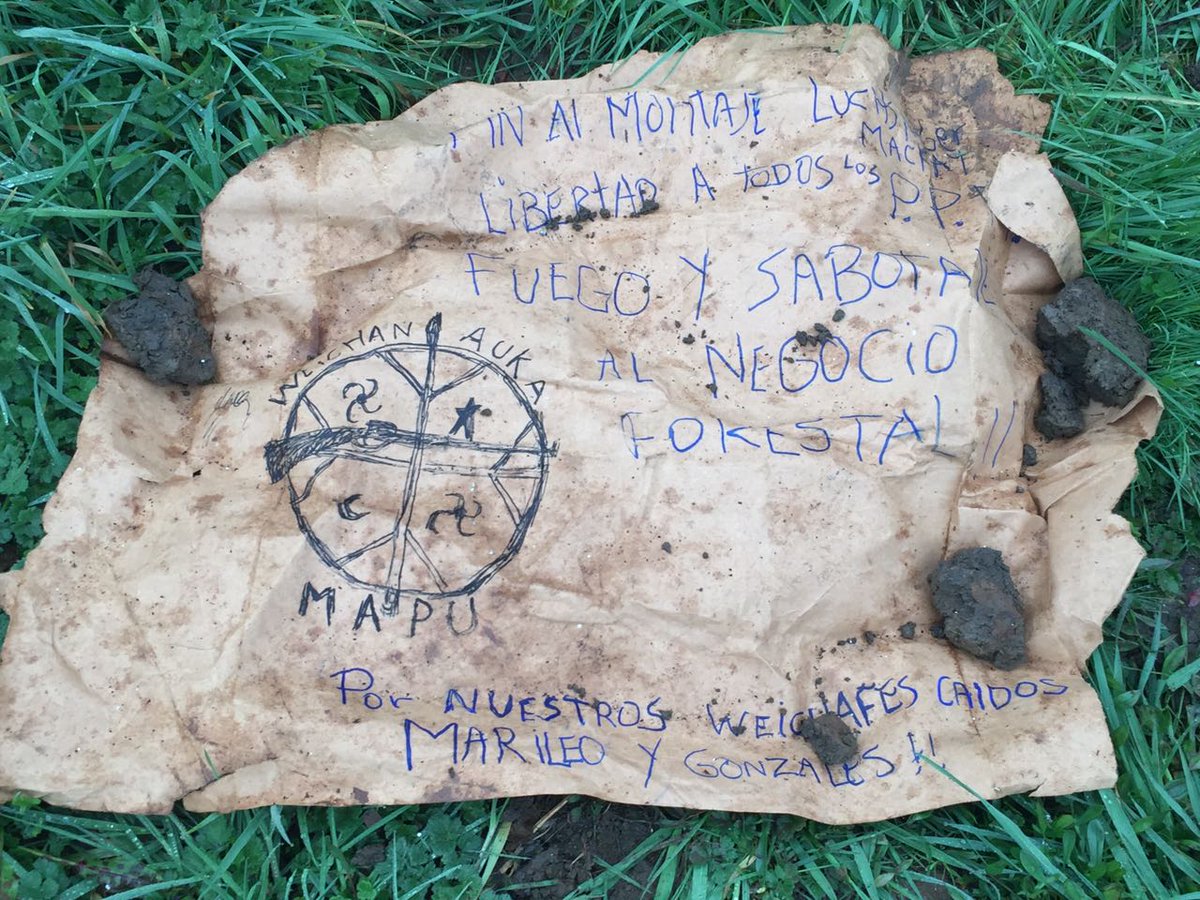 FIN AL MONTAJE LUCHSINGER
MACKAY
LIBERTAD A TODOS LOS P.P.
FUEGO Y SABOTAJE
AL NEGOCIO
FORESTAL !!
WEICHAN AUKA
MAPU
POR NUESTROS WEICHAFES CAIDOS
MARILEO Y GONZALES !!